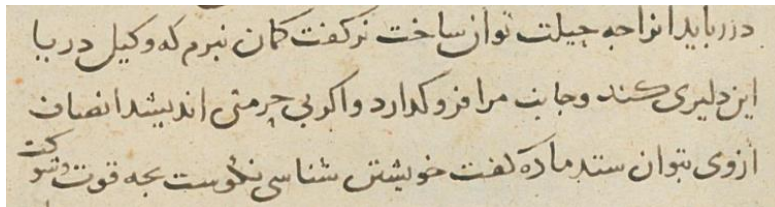 دررباید انرا چه حیلت توان ساخت نر کفت کمان نبرم که وکیل دریا
این دلیری کند و جانب مرا فرو کذارد و اکر بی حرمتی اندیشد انصاف
ازوی بتوان ستد ماده کفت خویشتن شناسی نکوست بچه قوت و شوکت